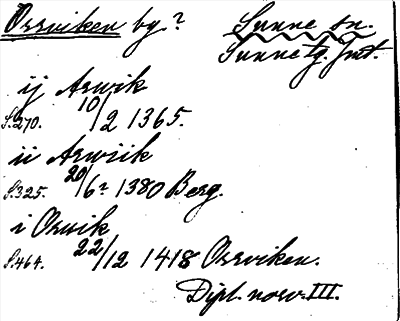 Orrviken by? Sunne sn.
Sunne tg. Jmt.
ij Arwik
S.270. 10/2 1365.
ii Arwiik
S.325. 20/6? 1380 Berg.
i Orwik
S.464. 22/12 1418 Orrviken.
Dipl. norv. III.